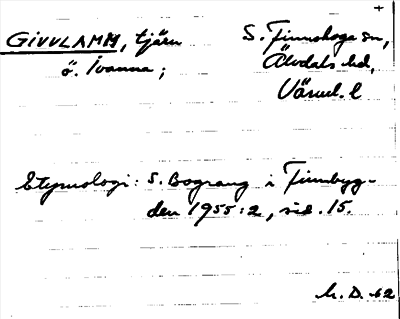 +
GIVVLAMM, tjärn S. Finnskoga sn,
ö. Ivanna; Älvdals hd,
Värml. l
Etymologi: S. Bograng i Finnbyg-
den 1955:2, sid. 15.
M. D. 62